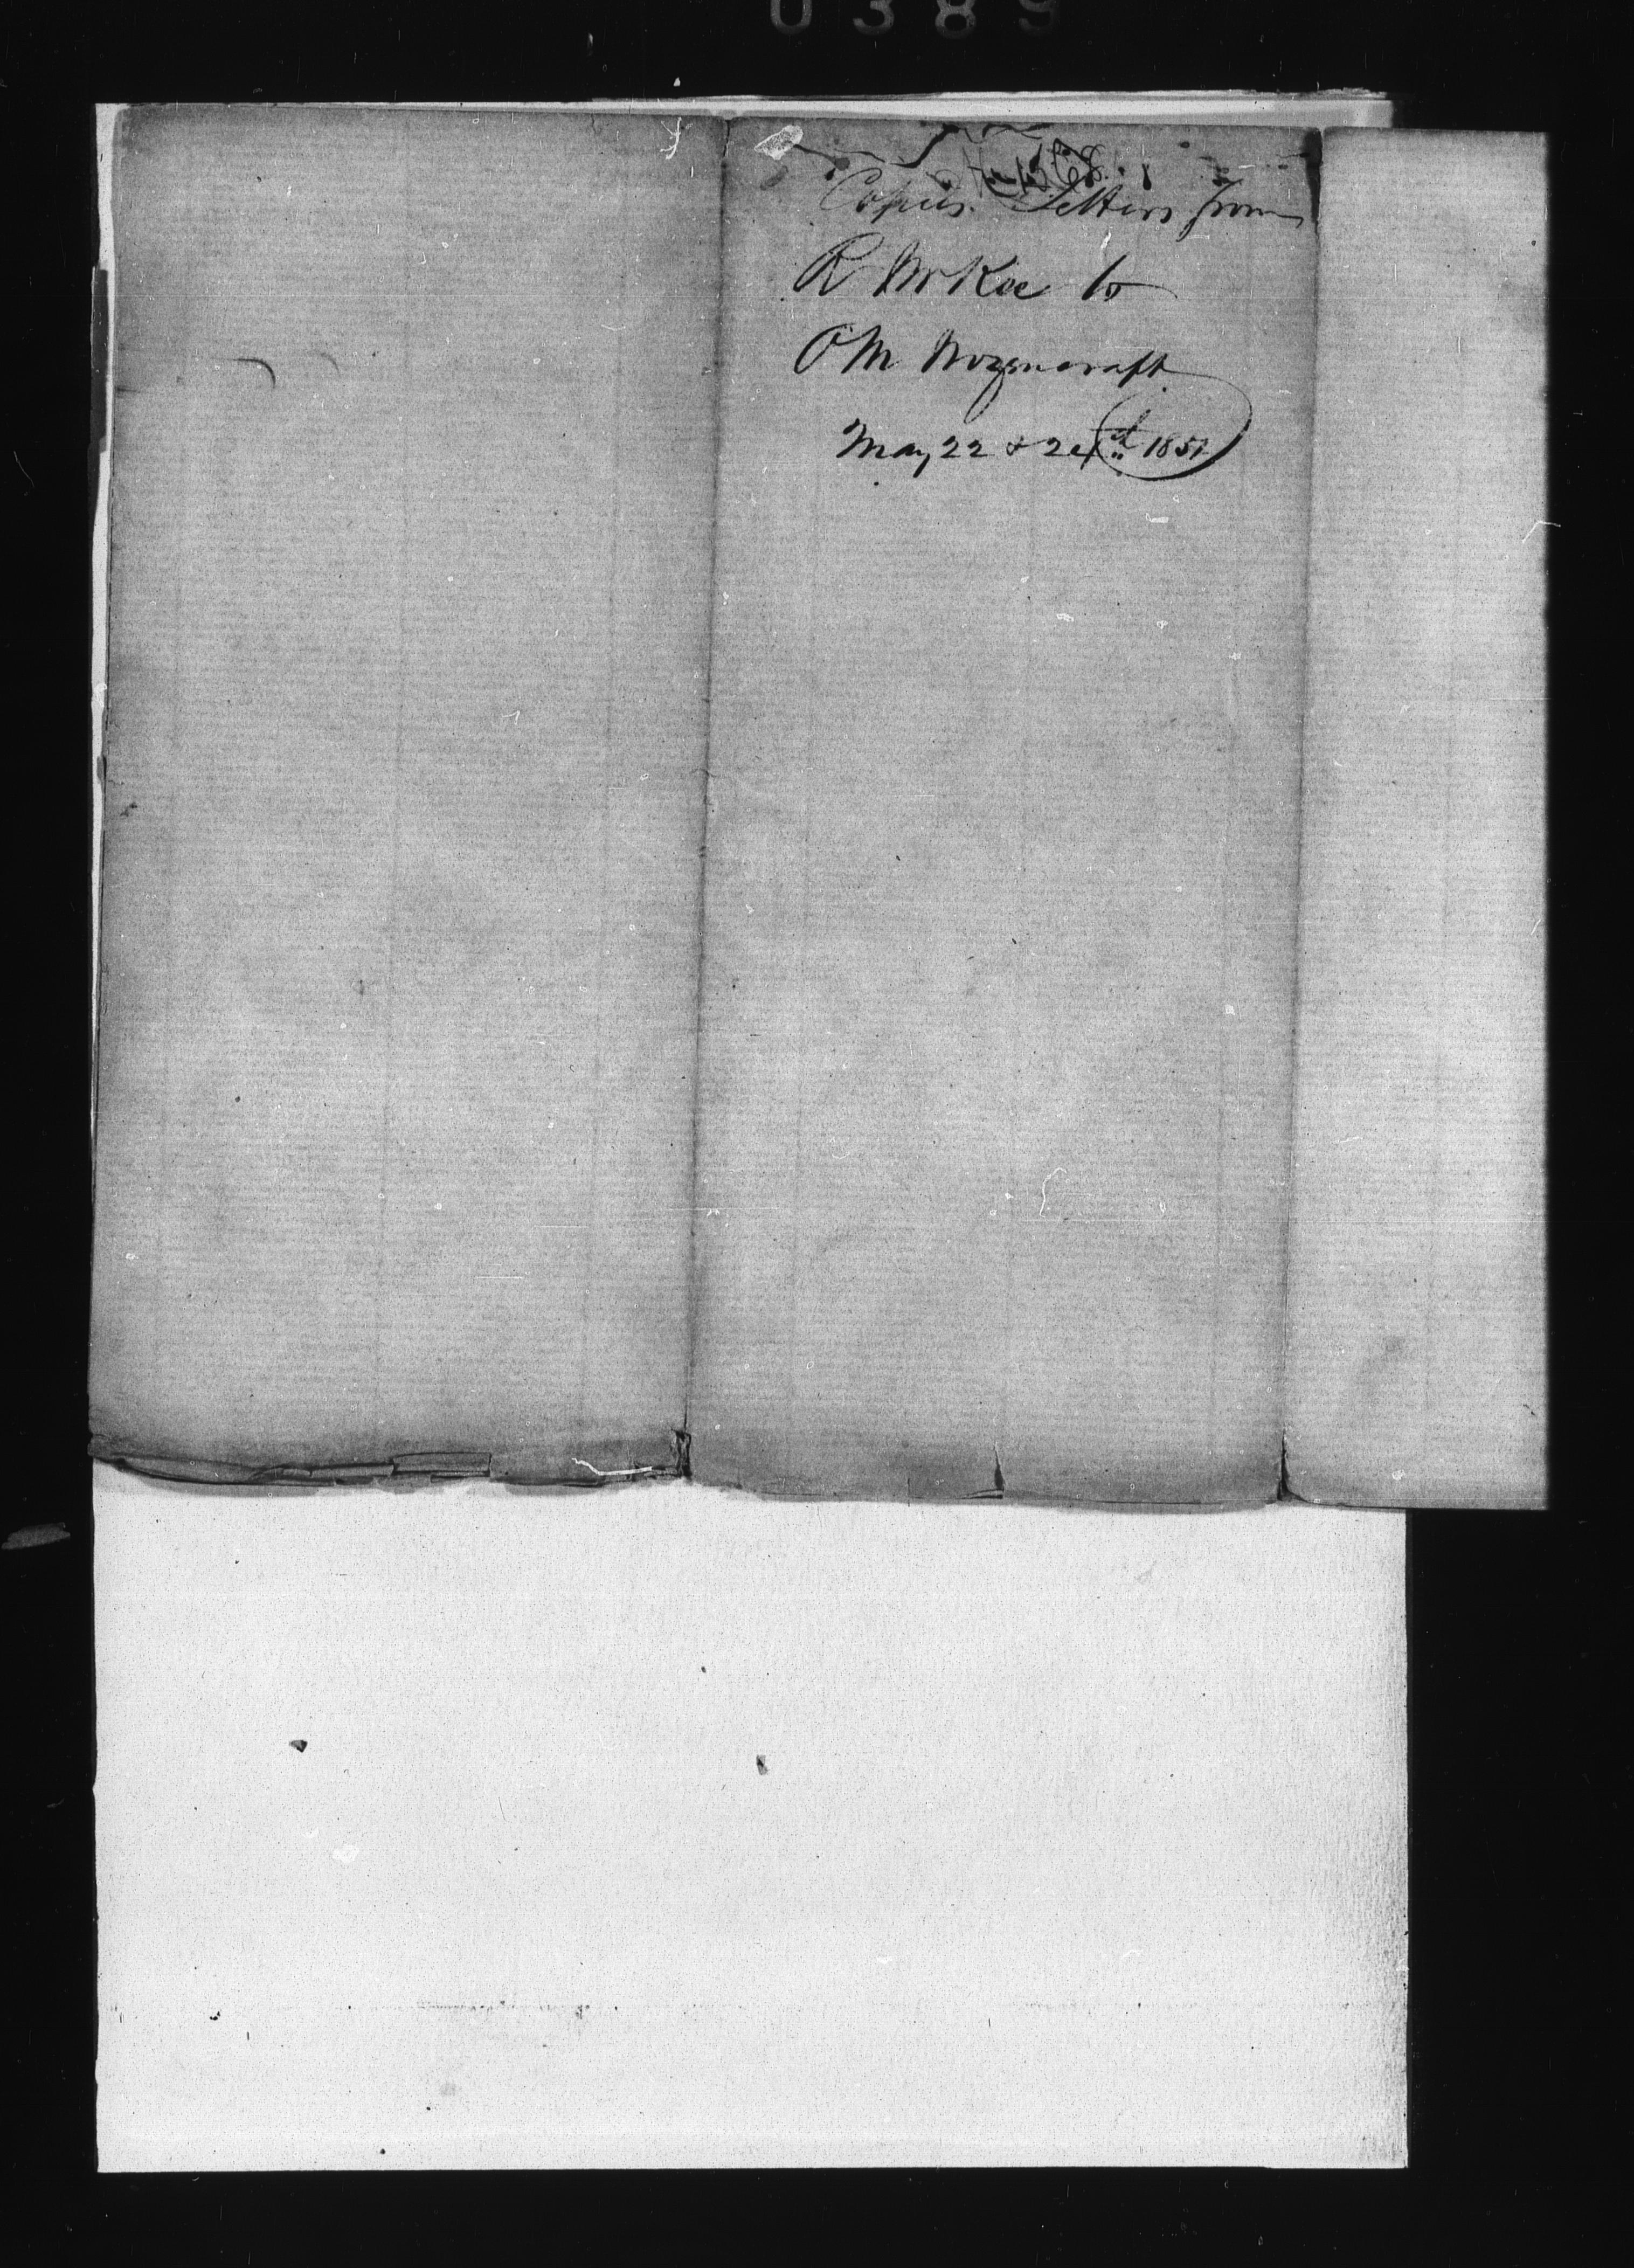 0389
Copies. Letters from
R McKee to
O M Wozencraft
May 22 & 24th 1851